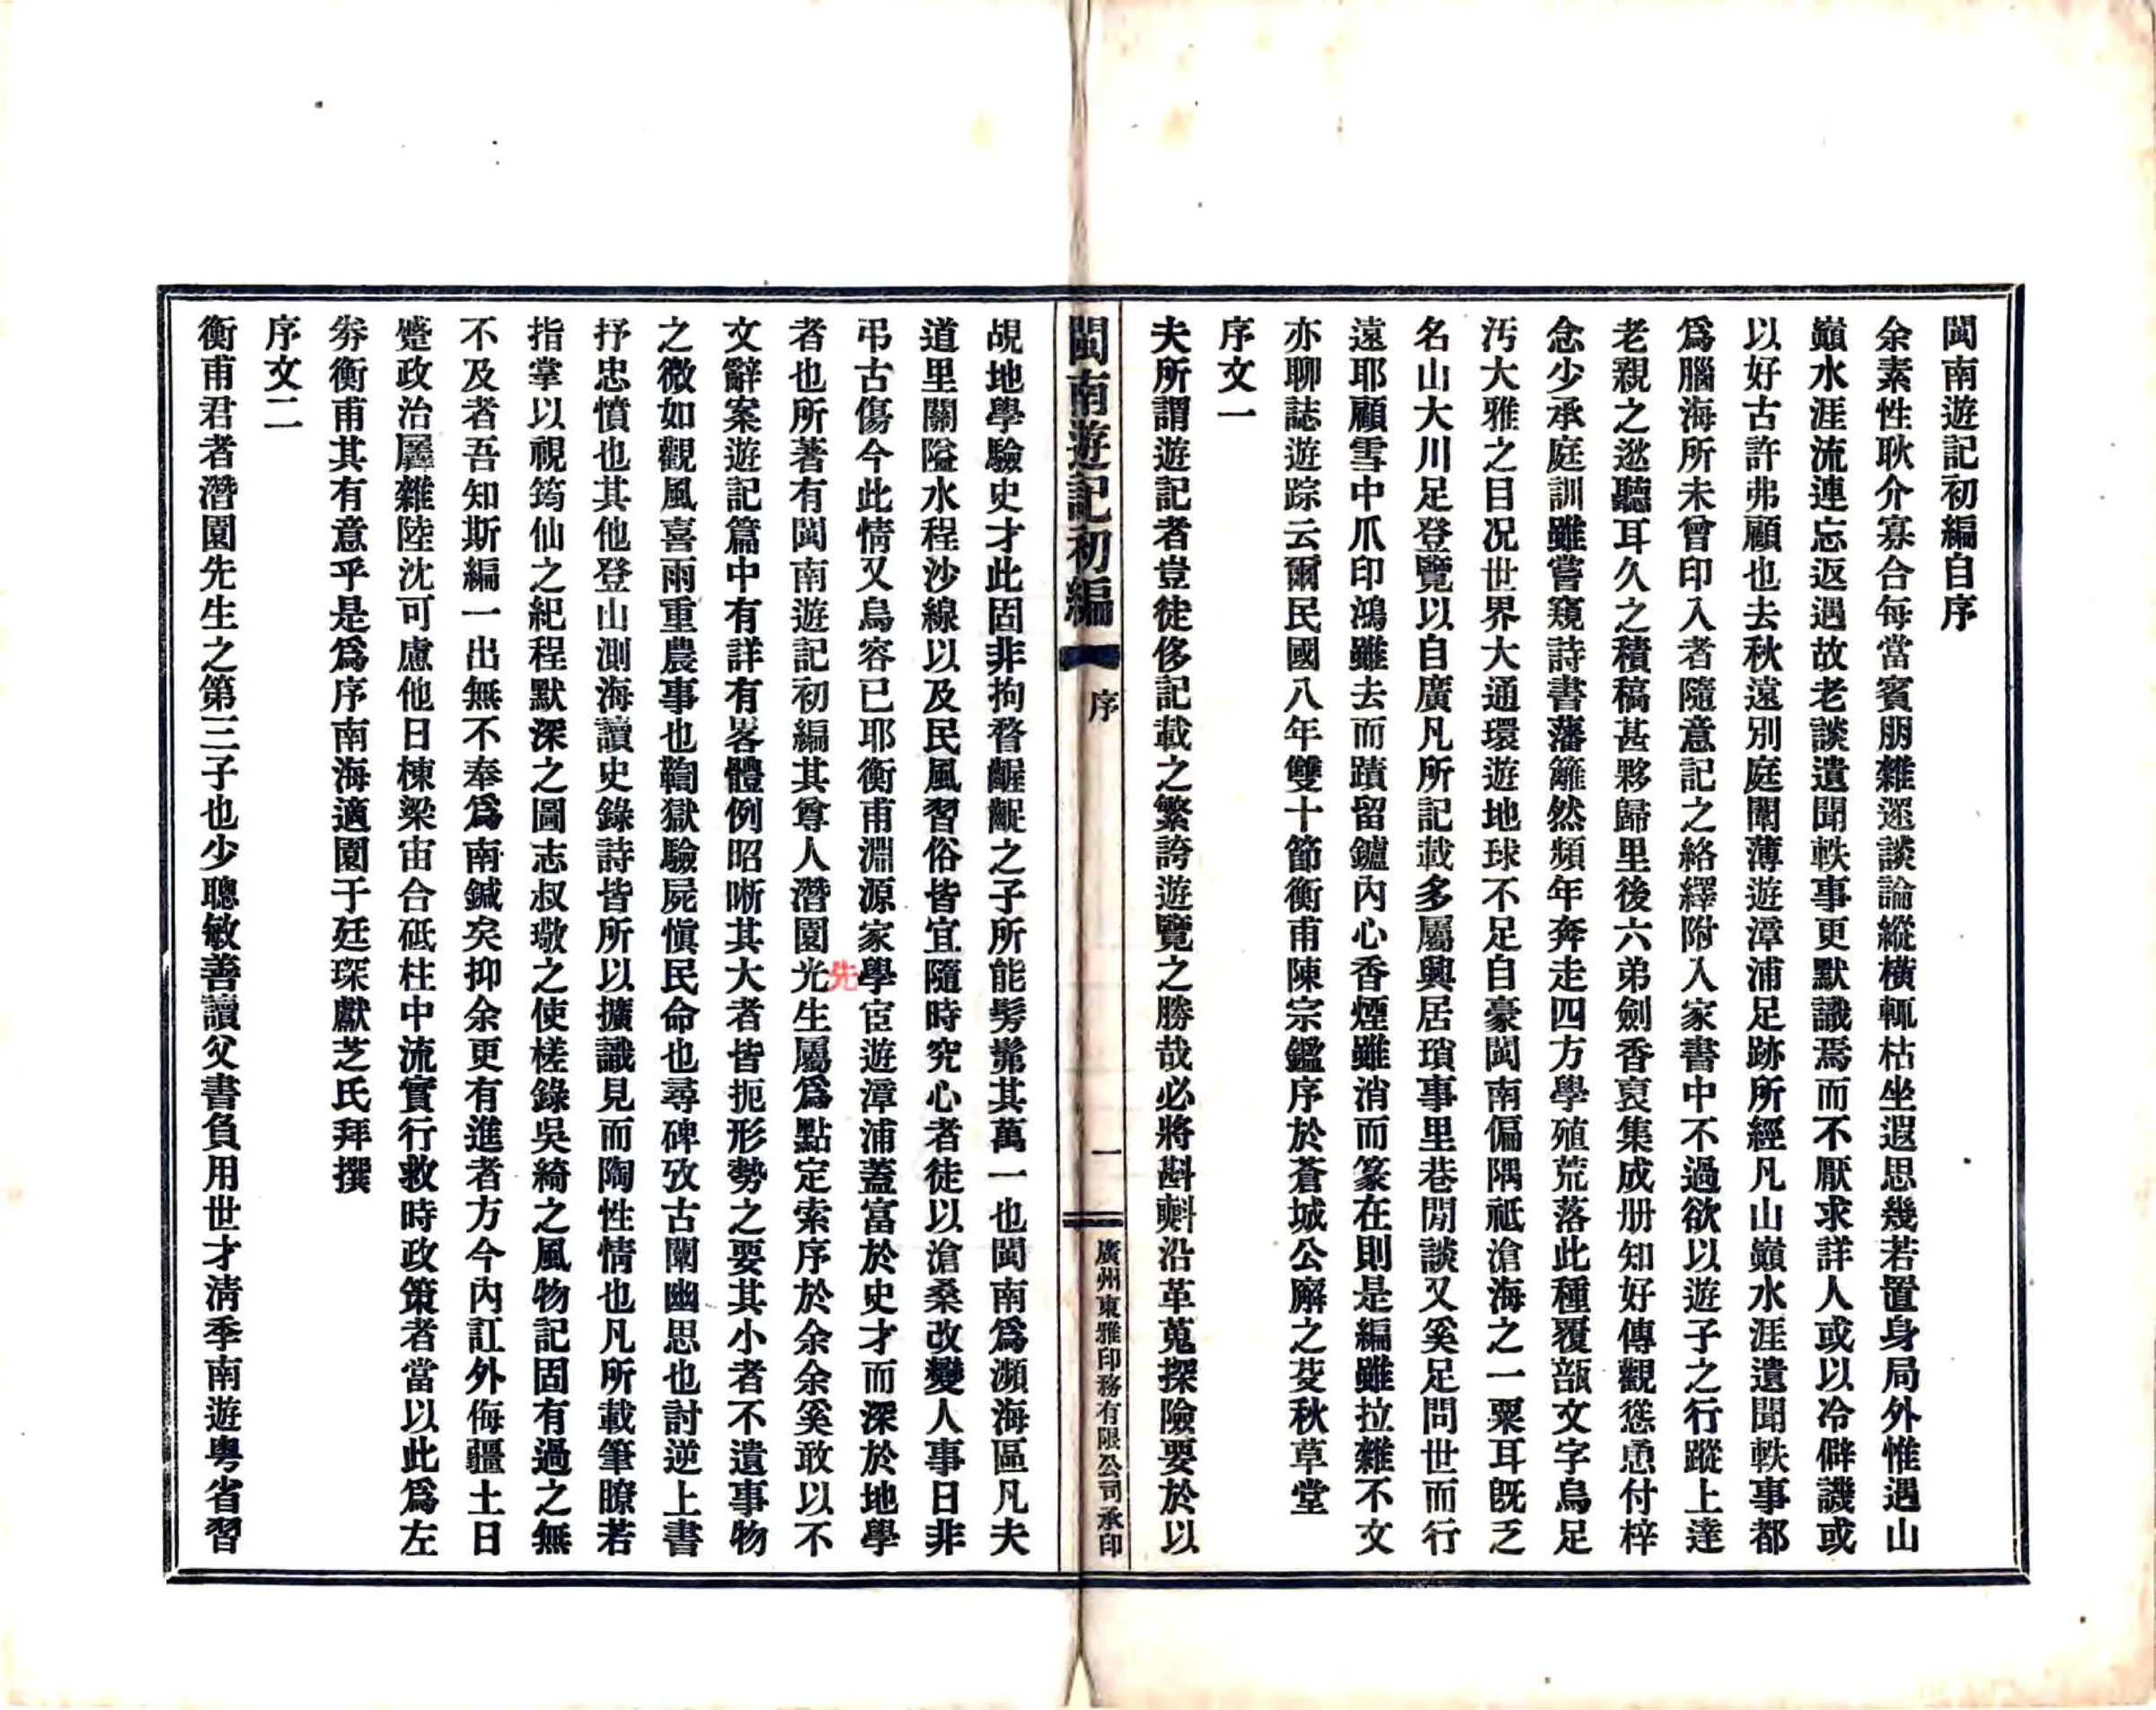 閩南遊記初編自序
余素性耿介寡合每當賓朋雜遝談論縱橫輒枯坐遐思幾若置身局外惟遇山
巔水涯流連忘返遇故老談遺聞軼事更默識焉而不厭求詳人或以冷僻譏或
以好古許弗顧也去秋遠別庭闈薄遊漳浦足跡所經凡山巔水涯遺聞軼事都
爲腦海所未曾印入者隨意記之絡繹附入家書中不過欲以遊子之行蹤上達
老親之逖聽耳久之積稿甚夥歸里後六弟劍香裒集成册知好傳觀慫恿付梓
念少承庭訓雖嘗窺詩書藩籬然頻年奔走四方學殖荒落此種覆瓿文字烏足
汚大雅之目况世界大通環遊地球不足自豪閩南偏隅祗滄海之一粟耳旣乏
名山大川足登覽以自廣凡所記載多屬興居瑣事里巷閒談又奚足問世而行
遠耶顧雪中爪印鴻雖去而蹟留鑪內心香煙雖消而篆在則是編雖拉雜不文
亦聊誌遊踪云爾民國八年雙十節衡甫陳宗鑑序於蒼城公廨之芟秋草堂
序文一
夫所謂遊記者豈徒侈記載之繁誇遊覽之勝哉必將斟𣂏沿革蒐探險要於以
閩南遊記初編
序
一
廣州東雅印務有限公司承印
覘地學驗史才此固非拘瞀齷齪之子所能髣髴其萬一也閩南爲瀕海區凡夫
道里關隘水程沙線以及民風習俗皆宜隨時究心者徒以滄桑改變人事日非
弔古傷今此情又烏容已耶衡甫淵源家學宦遊漳浦蓋富於史才而深於地學
者也所著有閩南遊記初編其尊人潛園光生屬爲點定索序於余余奚敢以不
先
文辭案遊記篇中有詳有畧體例昭晰其大者皆扼形勢之要其小者不遺事物
之微如觀風喜雨重農事也鞫獄驗屍愼民命也尋碑攷古闡幽思也討逆上書
抒忠憤也其他登山測海讀史錄詩皆所以擴識見而陶性情也凡所載筆瞭若
指掌以視筠仙之紀程默深之圖志叔璥之使槎錄吳綺之風物記固有過之無
不及者吾知斯編一出無不奉爲南鍼矣抑余更有進者方今內訌外侮疆土日
蹙政治孱雜陸沈可慮他日棟梁宙合砥柱中流實行救時政策者當以此爲左
劵衡甫其有意乎是爲序南海適園于廷琛獻芝氏拜撰
序文二
衡甫君者潛園先生之第三子也少聰敏善讀父書負用世才淸季南遊粵省習